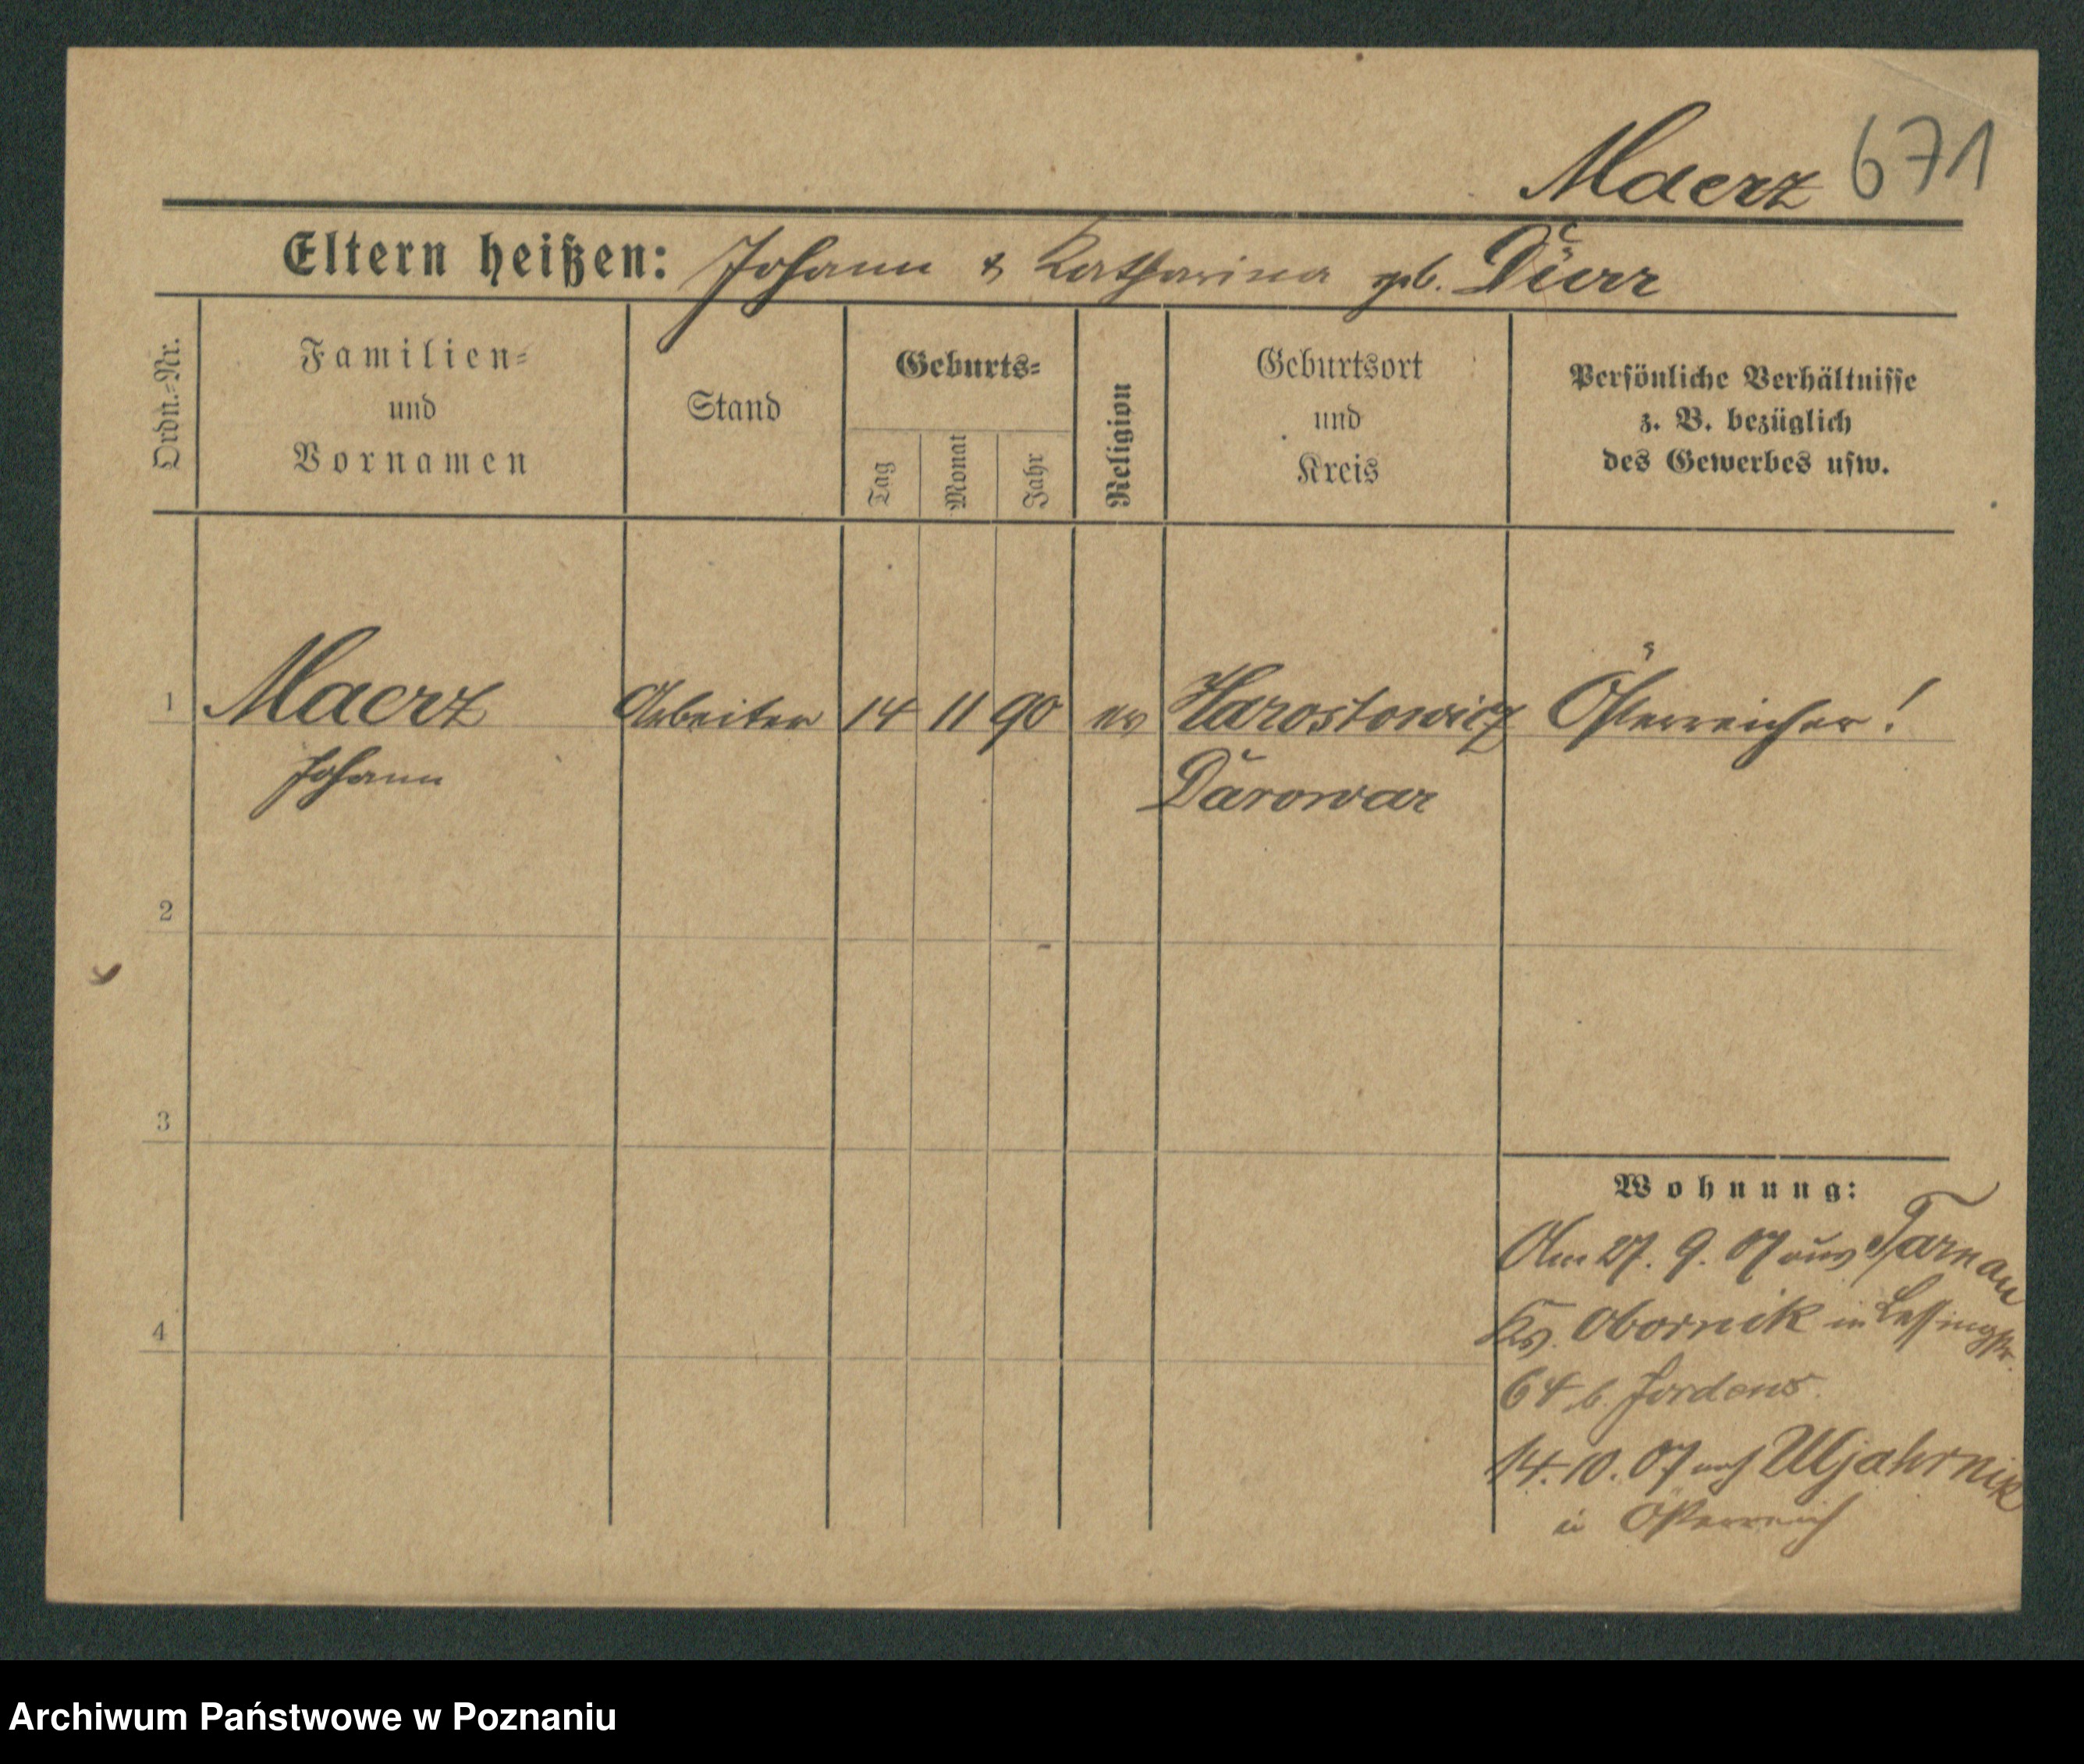 Maerz 671
Eltern heißen: Johann & Katharina geb. Dürr
Ordn.-Nr.
Familien-
und
Vornamen
Stand
Geburts-
Tag
Monat
Jahr
Religion
Geburtsort
und
Kreis
Persönliche Verhältnisse
z. B. bezüglich
des Gewerbes usw.
1 Maerz Arbeiter 14 11 90 ev Harostowicz Österreicher!
Johann Darowar
2
3
4
Wohnung:
Am 27. 9. 07 aus Tarnau
Krs. Obornik in Lessingstr.
64 b. Jordens.
14. 10. 07 nach Uljahrnik
in Österreich
Archiwum Państwowe w Poznaniu